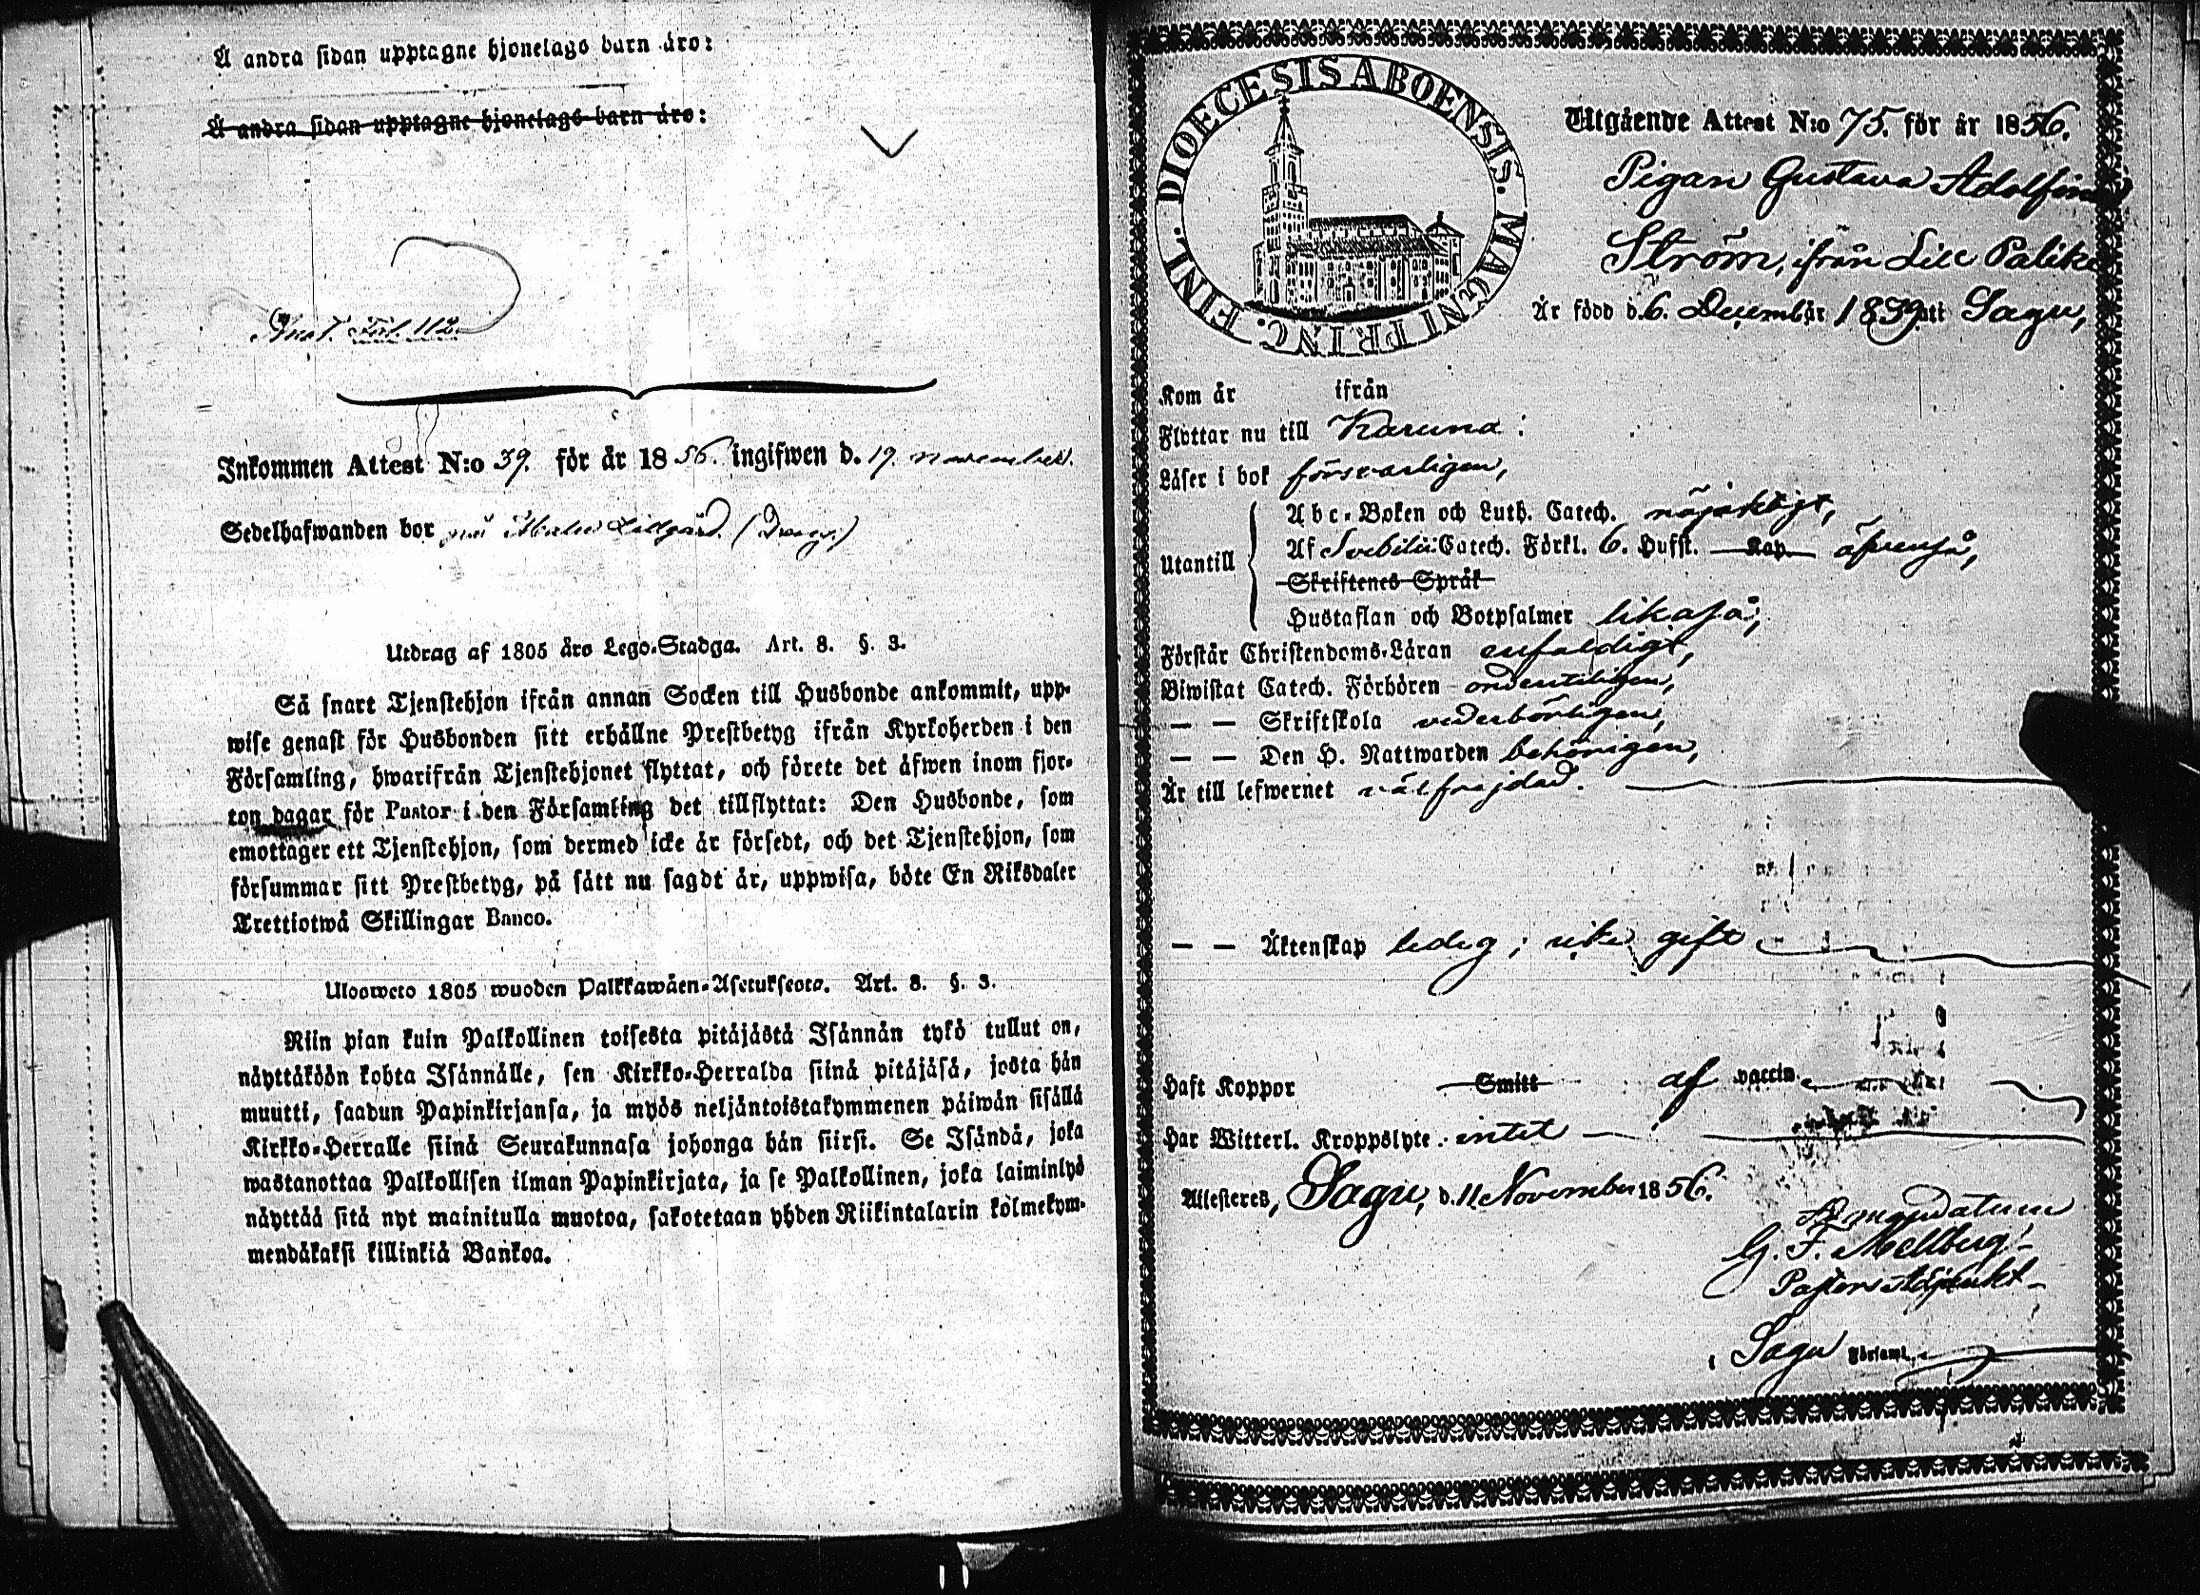 Å andra sidan upptagne hjonelags barn äro:
Å andra sidan upptagne hjonelags barn äro:
Fol. 112.
Inkommen Attest N:o 39. för år 1856. ingifwen d. 19. november.
Sedelhafwanden bor på Lillgård.
Utdrag af 1805 års Lego-Stadga. Art. 8. §. 3.
Så snart Tjenstehjon ifrån annan Socken till Husbonde ankommit, upp-
wise genast för Husbonden sitt erhållne Prestbetyg ifrån Kyrkoherden i den
Församling, hwarifrån Tjenstehjonet flyttat, och förete det äfwen inom fjor-
ton dagar för Pastor i den Församling det tillflyttat: Den Husbonde, som
emottager ett Tjenstehjon, som dermed icke är försedt, och det Tjenstehjon, som
försummar sitt Prestbetyg, på sätt nu sagdt är, uppwisa, böte En Riksdaler
Trettiotwå Skillingar Banco.
Ulosweto 1805 wuoden Palkkawäen-Asetuksesta. Art. 8. §. 3.
Niin pian kuin Palkollinen toisesta pitäjästä Isännän tykö tullut on,
näyttäköön kohta Isännälle, sen Kirkko-Herralda siinä pitäjäsä, josta hän
muutti, saadun Papinkirjansa, ja myös neljäntoistakymmenen päiwän sisällä
Kirkko-Herralle siinä Seurakunnasa johonga hän siirsi. Se Isändä, joka
wastanottaa Palkollisen ilman Papinkirjata, ja se Palkollinen, joka laiminlyö
näyttää sitä nyt mainitulla muotoa, sakotetaan yhden Riikintalarin kolmekym-
mendäkaksi killinkiä Bankoa.
DIOECESIS ABOENSIS. MAGNI PRINC. FINL.
Utgående Attest N:o 75. för år 1856.
Pigan Gustava Adolfina
Ström, ifrån Lill Palike
Är född d. 6. December 1839 uti Sagu,
Kom år ifrån
Flyttar nu till Karuna:
Läser i bok försvarligen,
Utantill
Abc-Boken och Luth. Catech. nöjaktigt,
Af Svebilii Catech. Förkl. 6. Hufst. Kap. äfvenså,
Skriftenes Språk
Hustaflan och Botpsalmer likaså,
Förstår Christendoms-Läran enfaldigt,
Biwistat Catech. Förhören ordentligen,
— — Skriftskola vederbörligen,
— — Den H. Nattwarden behörigen,
Är till lefwernet välfrejdad.
— — Äktenskap ledig; icke gift
Haft Koppor Smitt af vaccin.
Har Witterl. Kroppslyte intet
Attesteras, Sagu, d. 11 November 1856.
Ad mandatum
G. F. Mellberg
Pastors Adjunkt
i Sagu Församl.